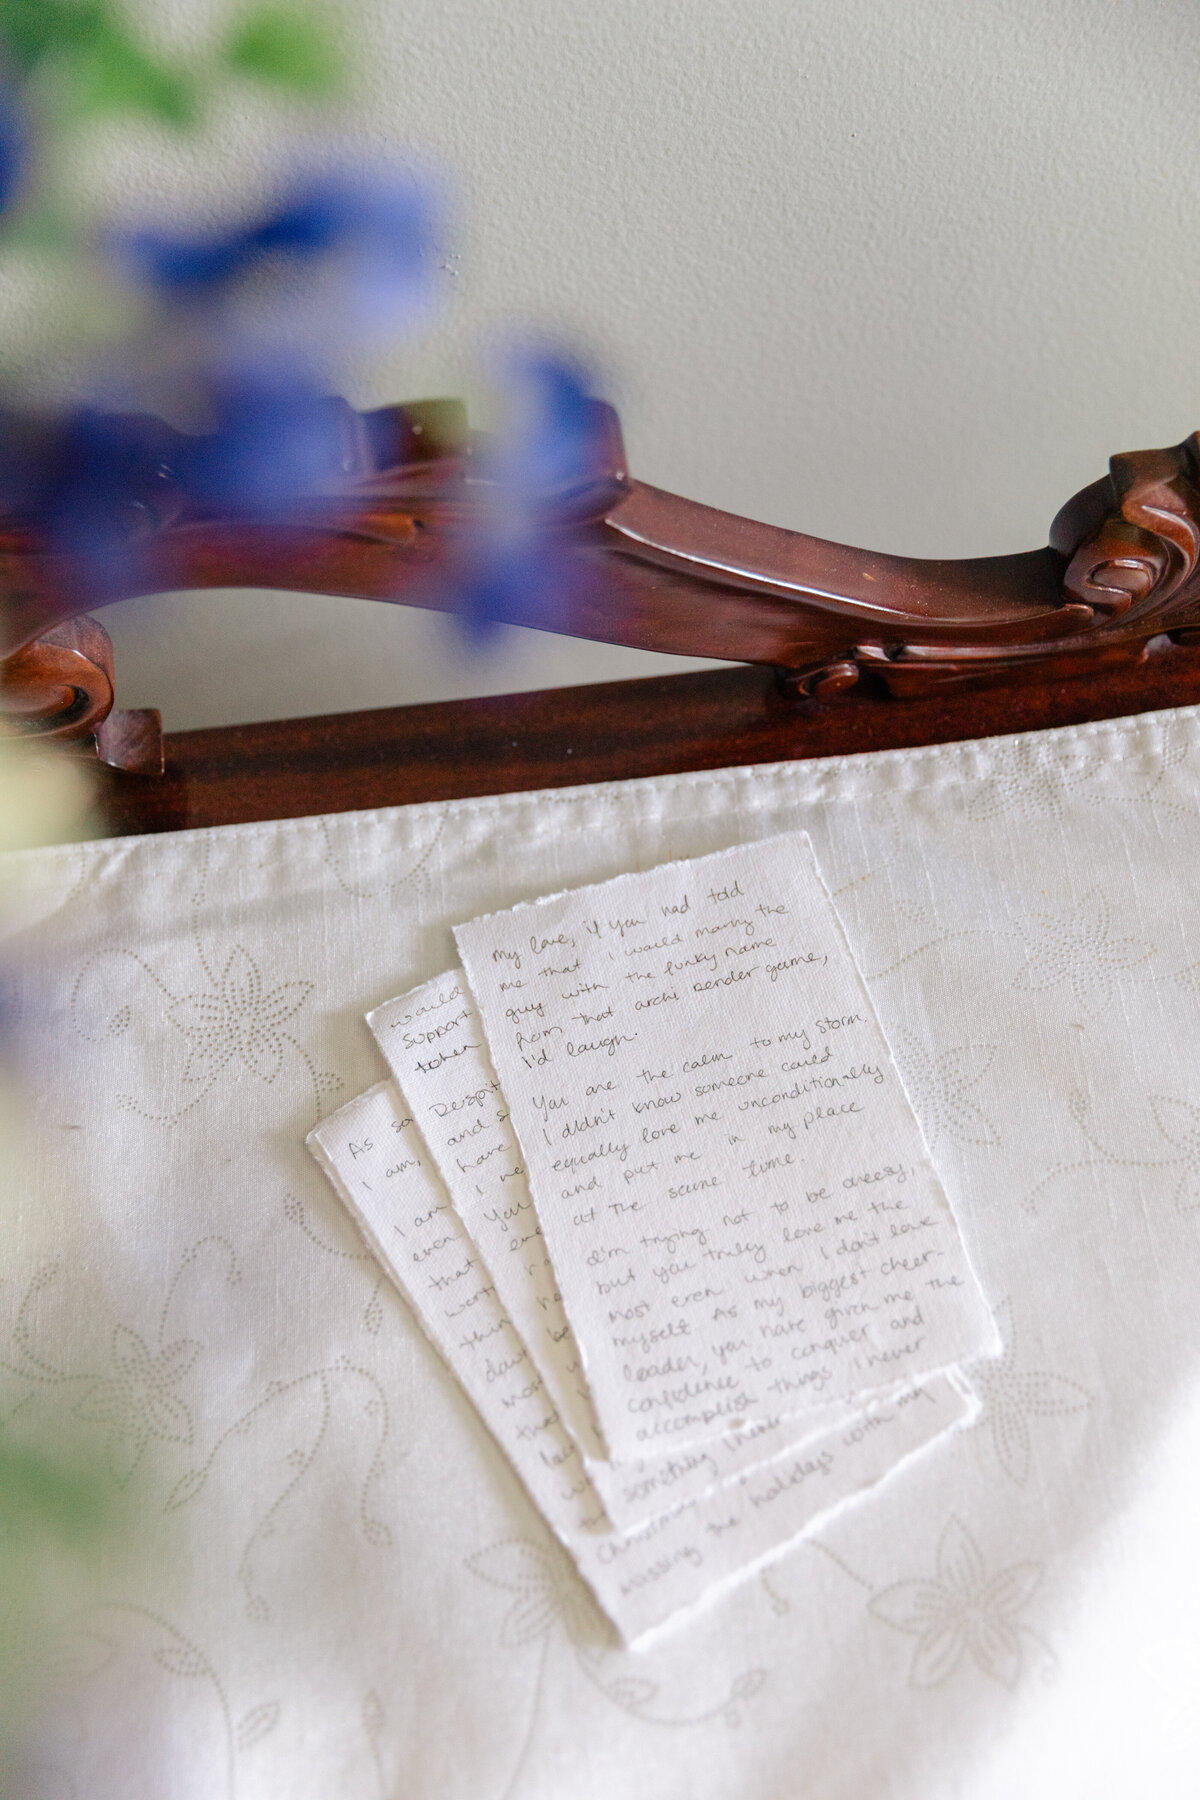 My love, if you had told
me that I would marry the
guy with the funky name
from that archi render game,
I'd laugh.
You are the calm to my storm.
I didn't know someone could
equally love me unconditionally
and put me in my place
at the same time.
I'm trying not to be cheesy,
but you truly love me the
most even when I don't love
myself. As my biggest cheer-
leader, you have given me the
confidence to conquer and
accomplish things I never
would
support
token
Despit
and s
have
I ne
You
eve
he
be
something I
As so
I am,
I am
even
that
wort
thin
dow
mos
that
Christmas
missing the holidays with my